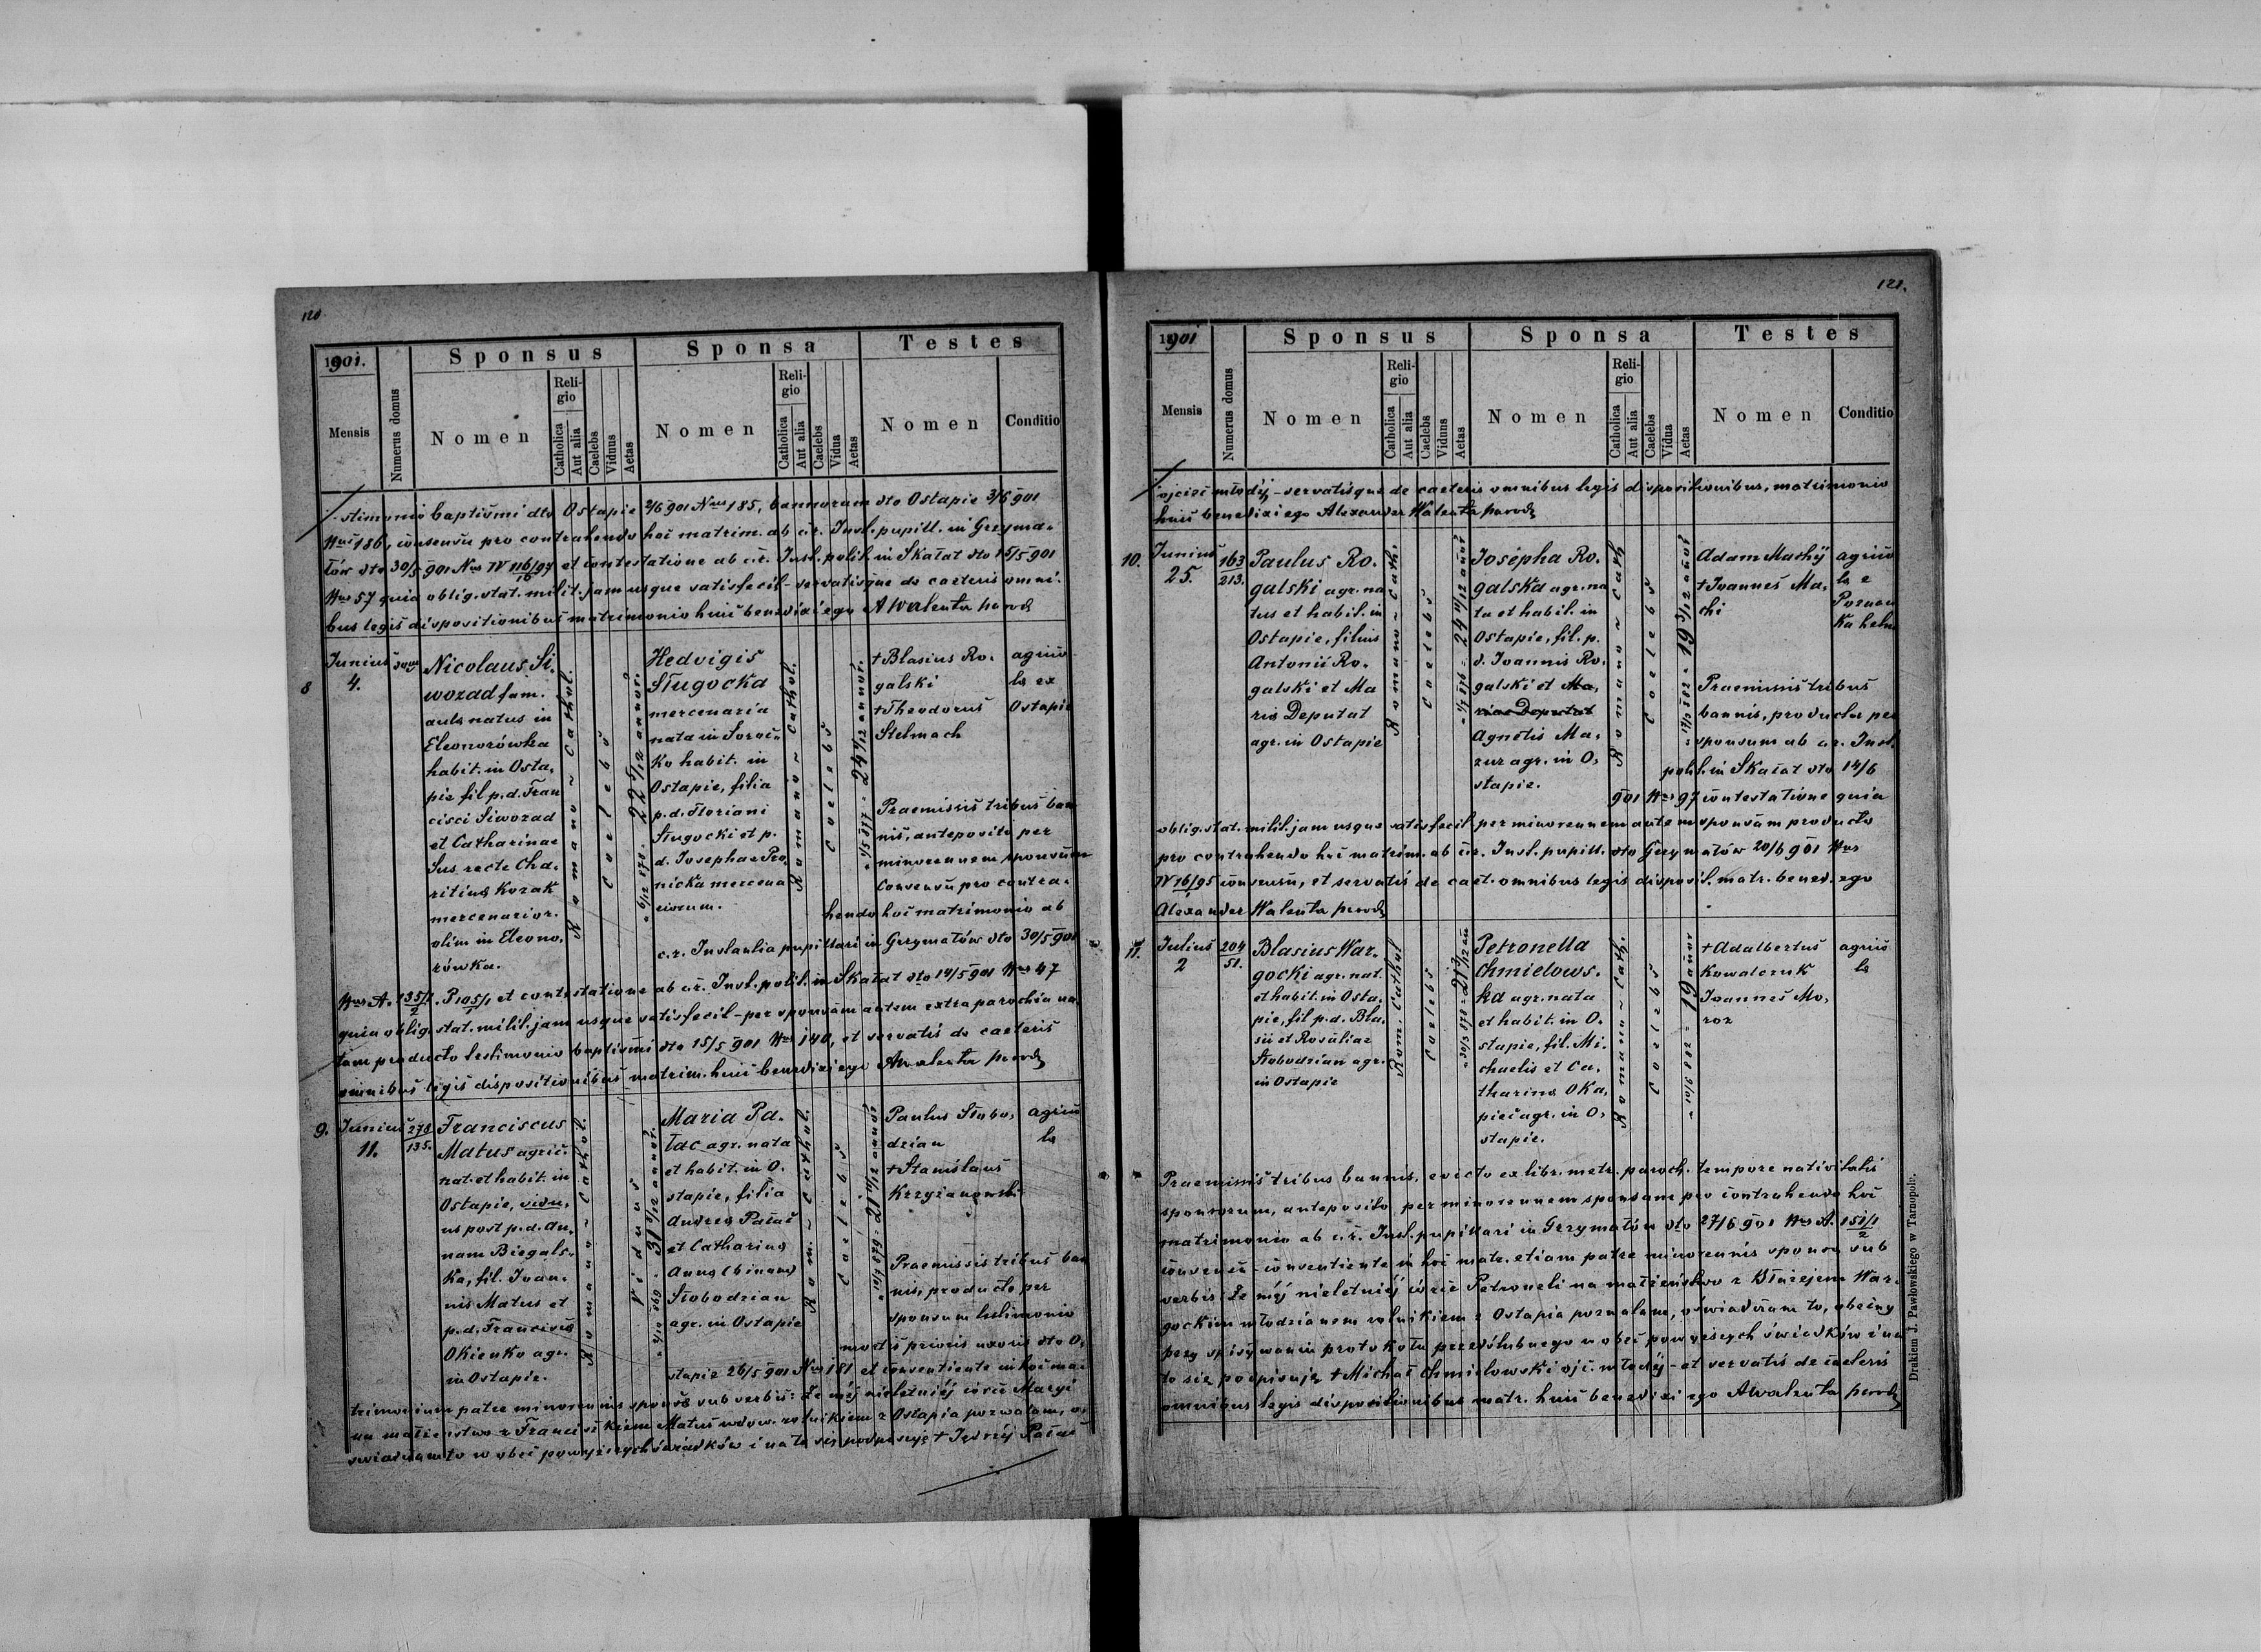 120
1901.
Mensis
Numerus domus
Sponsus
Nomen
Religio
Catholica
Aut alia
Caelebs
Viduus
Aetas
Sponsa
Nomen
Religio
Catholica
Aut alia
Caelebs
Vidua
Aetas
Testes
Nomen
Conditio
stimonio baptismi dto Ostapie 2/6 901 Nus 185, bannorum dto Ostapie 3/6 901
Nus 186, consensu pro contrahendo hoc matrim. ab c.r. Inst. pupill. in Grzyma-
łów dto 30/5 901 Nus IV 116/97 et contestatione ab c.r. Inst. polit. in Skałat dto 15/5 901
Nus 57 quia oblig. stat. milit. jam usque satisfecit - servatisque de caeteris omni-
bus legis dispositionibus matrimonio huic benedixi ego AWalenta paroch
8
Junius
4.
Nicolaus Si-
wozad fam.
aulae natus in
Eleonorówka
habit. in Osta-
pie fil p.d. Fran
cisci Siwozad
et Catharinae
Sus recte Cha-
ritina Kozak
mercenarior.
olim in Eleono-
rówka.
Romano - Cathol.
Coelebs
22 5/12 annor.
Hedvigis
Sługocka
mercenaria
nata in Soroc-
ko habit. in
Ostapie, filia
p.d. Floriani
Sługocki et p.
d. Josephae Pro-
nicka mercena
riorum.
Romano - Cathol.
Coelebs
24 1/12 annor.
+Blasius Ro-
galski
+Theodorus
Stelmach
agrico-
la ex
Ostapie
Praemissis tribus ban
nis, anteposito per
minorennem sponsum
consensu pro contra-
hendo hoc matrimonio ab
c.r. Instantia pupillari in Grzymałów dto 30/5 901
Nus A. 135/1 P 105/1 et contestatione ab c.r. Inst. polit. in Skałat dto 14/5 901 Nus 47
quia oblig. stat. milit. jam usque satisfecit - per sponsam autem extra parochia na
tam producto testimonio baptismi dto 15/5 901 Nus 140, et servatis de caeteris
omnibus legis dispositionibus matrim. huic benedixi ego AWalenta paroch
9.
Junius
11.
278
135.
Franciscus
Matus agric.
nat. et habit. in
Ostapie, vidu-
us post p.d. An-
nam Biegals-
ka, fil. Ioan-
nis Matus et
p.d. Francisca
Okienko agr.
in Ostapie.
Romano - Cathol.
Viduus
31 8/12 annor.
Maria Pa-
łac agr. nata
et habit. in O-
stapie, filia
Andrea Pałac
et Catharina
Anna (binam)
Słobodzian
agr. in Ostapie
Rom. - Cathol.
Coelebs
21 11/12 annor.
Paulus Słobo-
dzian
+Stanislaus
Krzyżanowski
agrico
la
Praemissis tribus ban
nis, producto per
sponsum testimonio
mortis prioris uxoris dto O-
stapie 26/5 901 Nus 181 et consentiente in hoc ma-
trimonium patre minorennis sponsae sub verbis: Że mej nieletniej córce Maryi
na małżeństwo z Franciszkiem Matus wdow. rolnikiem z Ostapia pozwalam, o-
świadczam to w obec powyższych świadków i na to się podpisuję + Jędrzej Pałac
121.
1901
Mensis
Numerus domus
Sponsus
Nomen
Religio
Catholica
Aut alia
Caelebs
Viduus
Aetas
Sponsa
Nomen
Religio
Catholica
Aut alia
Caelebs
Vidua
Aetas
Testes
Nomen
Conditio
ojciec młodej, - servatisque de caeteris omnibus legis dispositionibus, matrimonio
huic benedixi ego Alexander Walenta paroch
10.
Junius
25.
163
213.
Paulus Ro-
galski agr. na
tus et habit. in
Ostapie, filius
Antonii Ro-
galski et Ma
ria Deputat
agr. in Ostapie
Romano - Cath.
Coelebs
24 11/12 annor
Josepha Ro-
galska agr. na
ta et habit. in
Ostapie, fil. p.
d. Ioannis Ro-
galski et Ma-
riae Deputat
Agnetis Ma-
zur agr. in O-
stapie.
Romano - Cath
Coelebs
19 3/12 annor
Adam Machÿ
+Ioannes Ma-
chi
agrico
la e
Poznan
ka hetm
Praemissis tribus
bannis, producta per
sponsum ab c.r. Inst.
polit. in Skałat dto 14/6
901 Nus 97 contestatione quia
oblig. stat. milit. jam usque satisfecit per minorennem autem sponsam producto
pro contrahendo hoc matrim. ab c.r. Inst. pupill. dto Grzymałów 20/6 901 Nus
IV 16/95 consensu, et servatis de caet. omnibus legis disposit. matr. bened. ego
Alexander Walenta paroch
11.
Julius
2
204
51.
Blasius War-
gocki agr. nat.
et habit. in Osta-
pie, fil p.d. Bla-
sii et Rosaliae
Słobodzian agr.
in Ostapie
Rom. Cathol
Coelebs
Petronella
Chmielows-
ka agr. nata
et habit. in O-
stapie, fil. Mi-
chaelis et Ca-
tharina Oka-
pieć agr. in O-
stapie.
Romano - Cath.
Coelebs
19 annor
+Adalbertus
Kowalczuk
Ioannes Mo-
roz
agrico
la
Praemissis tribus bannis, evicto ex libr. metr. paroch. tempore nativitatis
sponsorum, anteposito per minorennem sponsam pro contrahendo hoc
matrimonio ab c.r. Inst. pupillari in Grzymałów dto 27/6 901 Nus A. 151/1
2
consensu - consentiente in hoc matr. etiam patre minorennis sponsae sub
verbis: Że mej nieletniej córce Petroneli na małżeństwo z Błażejem War-
gockim młodzianem rolnikiem z Ostapia pozwalam, oświadczam to, obecny
przy spisywaniu protokołu przedślubnego w obec powyższych świadków i na
to się podpisuję + Michał Chmielowski ojc. młodej - et servatis de caeteris
omnibus legis dispositionibus matr. huic benedixi ego AWalenta paroch
Drukiem J. Pawłowskiego w Tarnopolu.